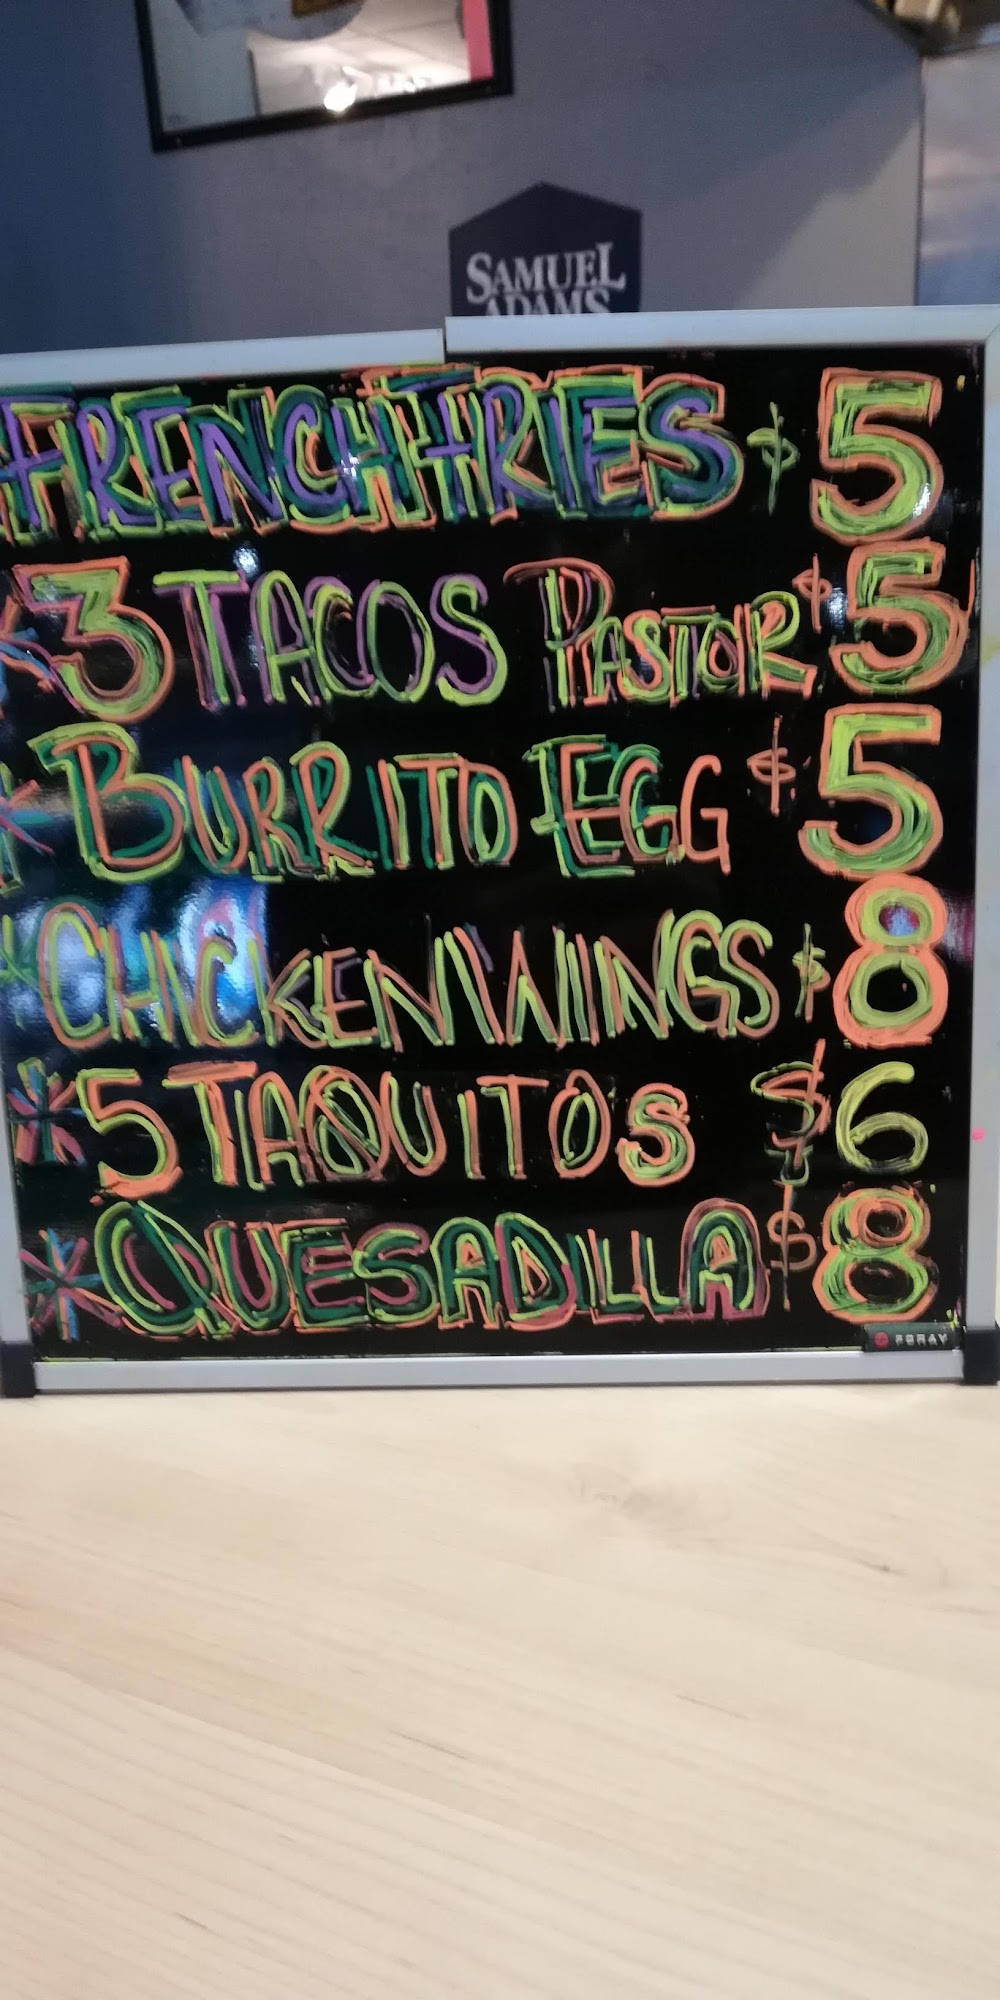 SAMUEL
ADAMS
FRENCH FRIES $5
* 3 TACOS PASTOR $5
* BURRITO EGG $5
* CHICKEN WINGS $8
* 5 TAQUITOS $6
* QUESADILLA $8
FORAY